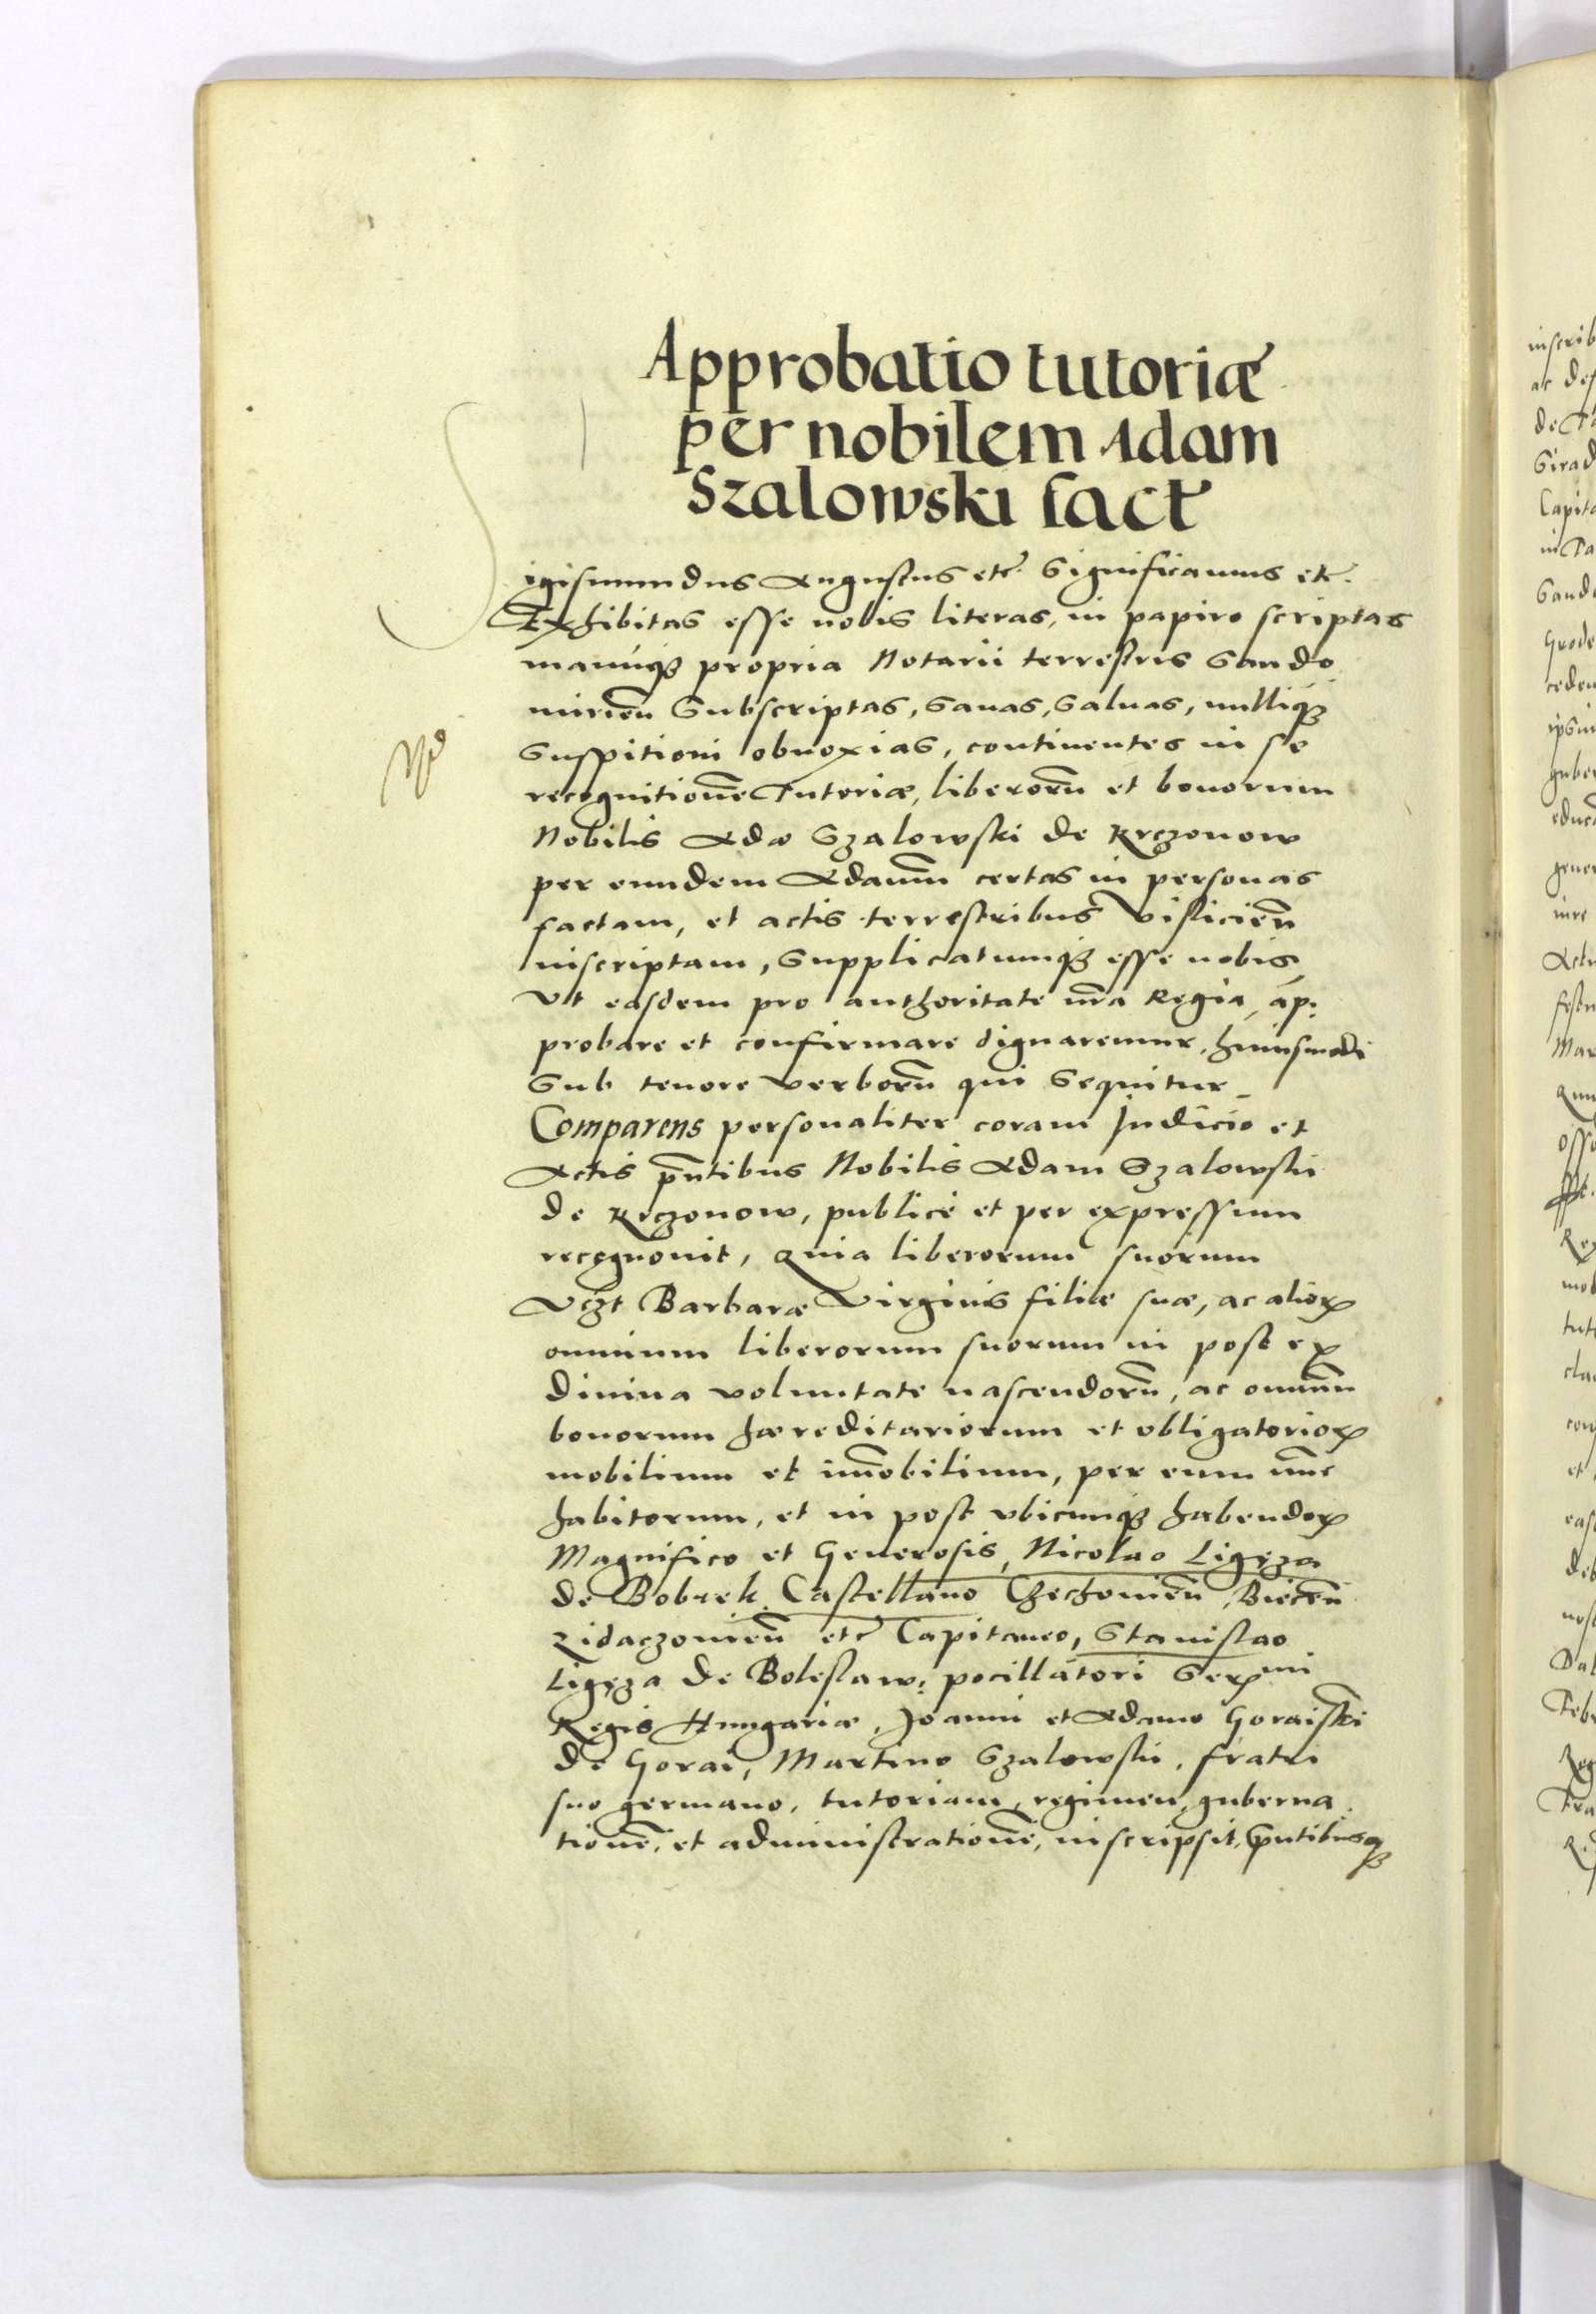 Approbatio tutoriæ
per nobilem Adam
Szalowski fact
Sigismundus Augustus etc. Significamus etc.
Exhibitas esse nobis literas, in papiro scriptas
manuq₃ propria Notarii terrestris Sando
mirien̄ Subscriptas, Sanas, Saluas, nulliq₃
Suspitioni obnoxias, continentes in se
recognitionē Tutoriæ, liberorū et bonorum
Nobilis Adæ Szalowski de Krczonow
per eundem Adamū certas in personas
factam, et actis terrestribus Vislicien̄
inscriptam, Supplicatumq₃ esse nobis,
Vt easdem pro authoritate nr̄a Regia, ap:
probare et confirmare dignaremur, huiusmodi
Sub tenore verborū qui Sequitur
Comparens personaliter coram Judicio et
Actis pn̄tibus Nobilis Adam Szalowski
de Krczonow, publice et per expressum
recognouit, Quia liberorum suorum
Vczt Barbaræ Virginis filiæ suæ, ac alioꝝ
omnium liberorum suorum in post ex
diuina voluntate nascendorū, ac omniū
bonorum hæreditariorum et obligatorioꝝ
mobilium et im̄obilium, per eum nunc
habitorum, et in post vbicunq₃ habendoꝝ
Magnifico et Generosis, Nicolao Ligęza
de Bobrek Castellano Czechouien̄, Biecen̄
Zidaczouien̄ etc Capitaneo, Stanislao
Ligęza de Boleslaw: pocillatori Serᵐⁱ
Regis Hungariæ, Joanni et Adamo Goraiski
de Gorai, Martino Szalowski, fratri
suo germano, tutoriam, regimen, guberna
tionē, et administrationē, inscripsit, pn̄tibusq₃